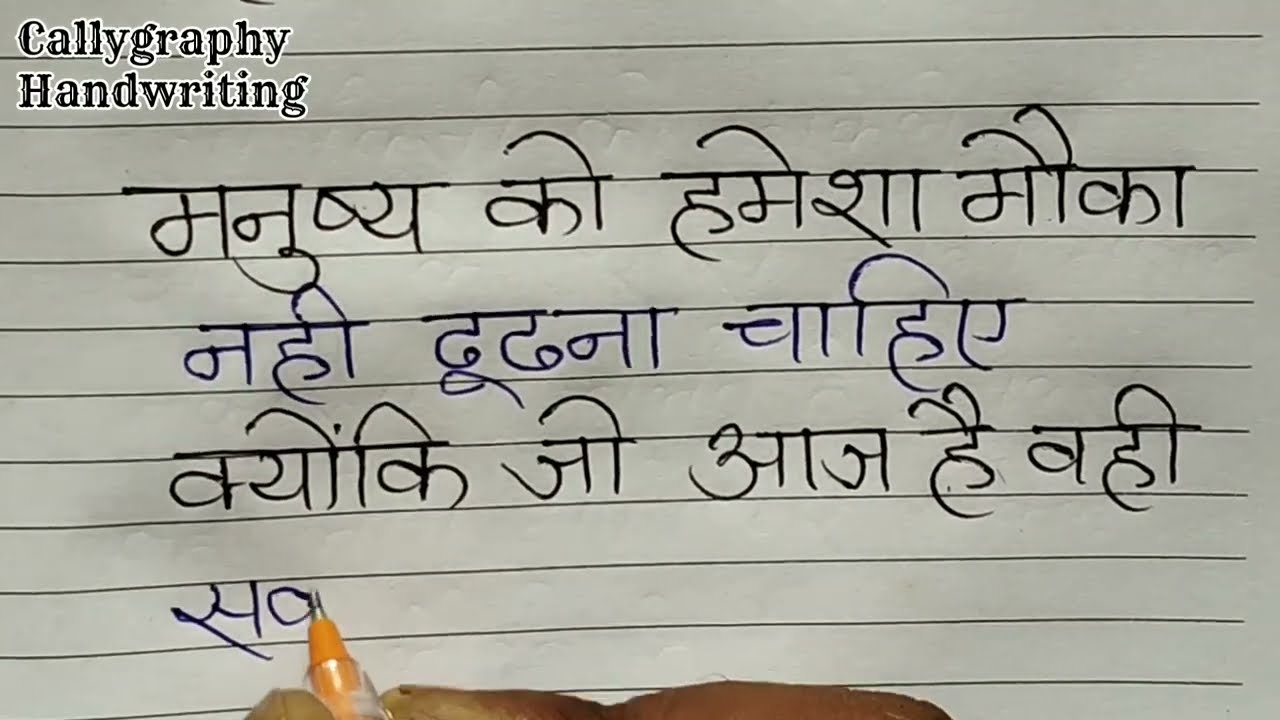 Callygraphy
Handwriting
मनुष्य को हमेशा मौका
नही ढूढना चाहिए
क्योंकि जो आज है वही